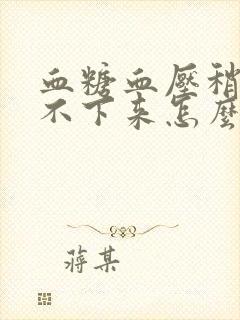 血糖血壓稍
不下来怎麼
蔣某